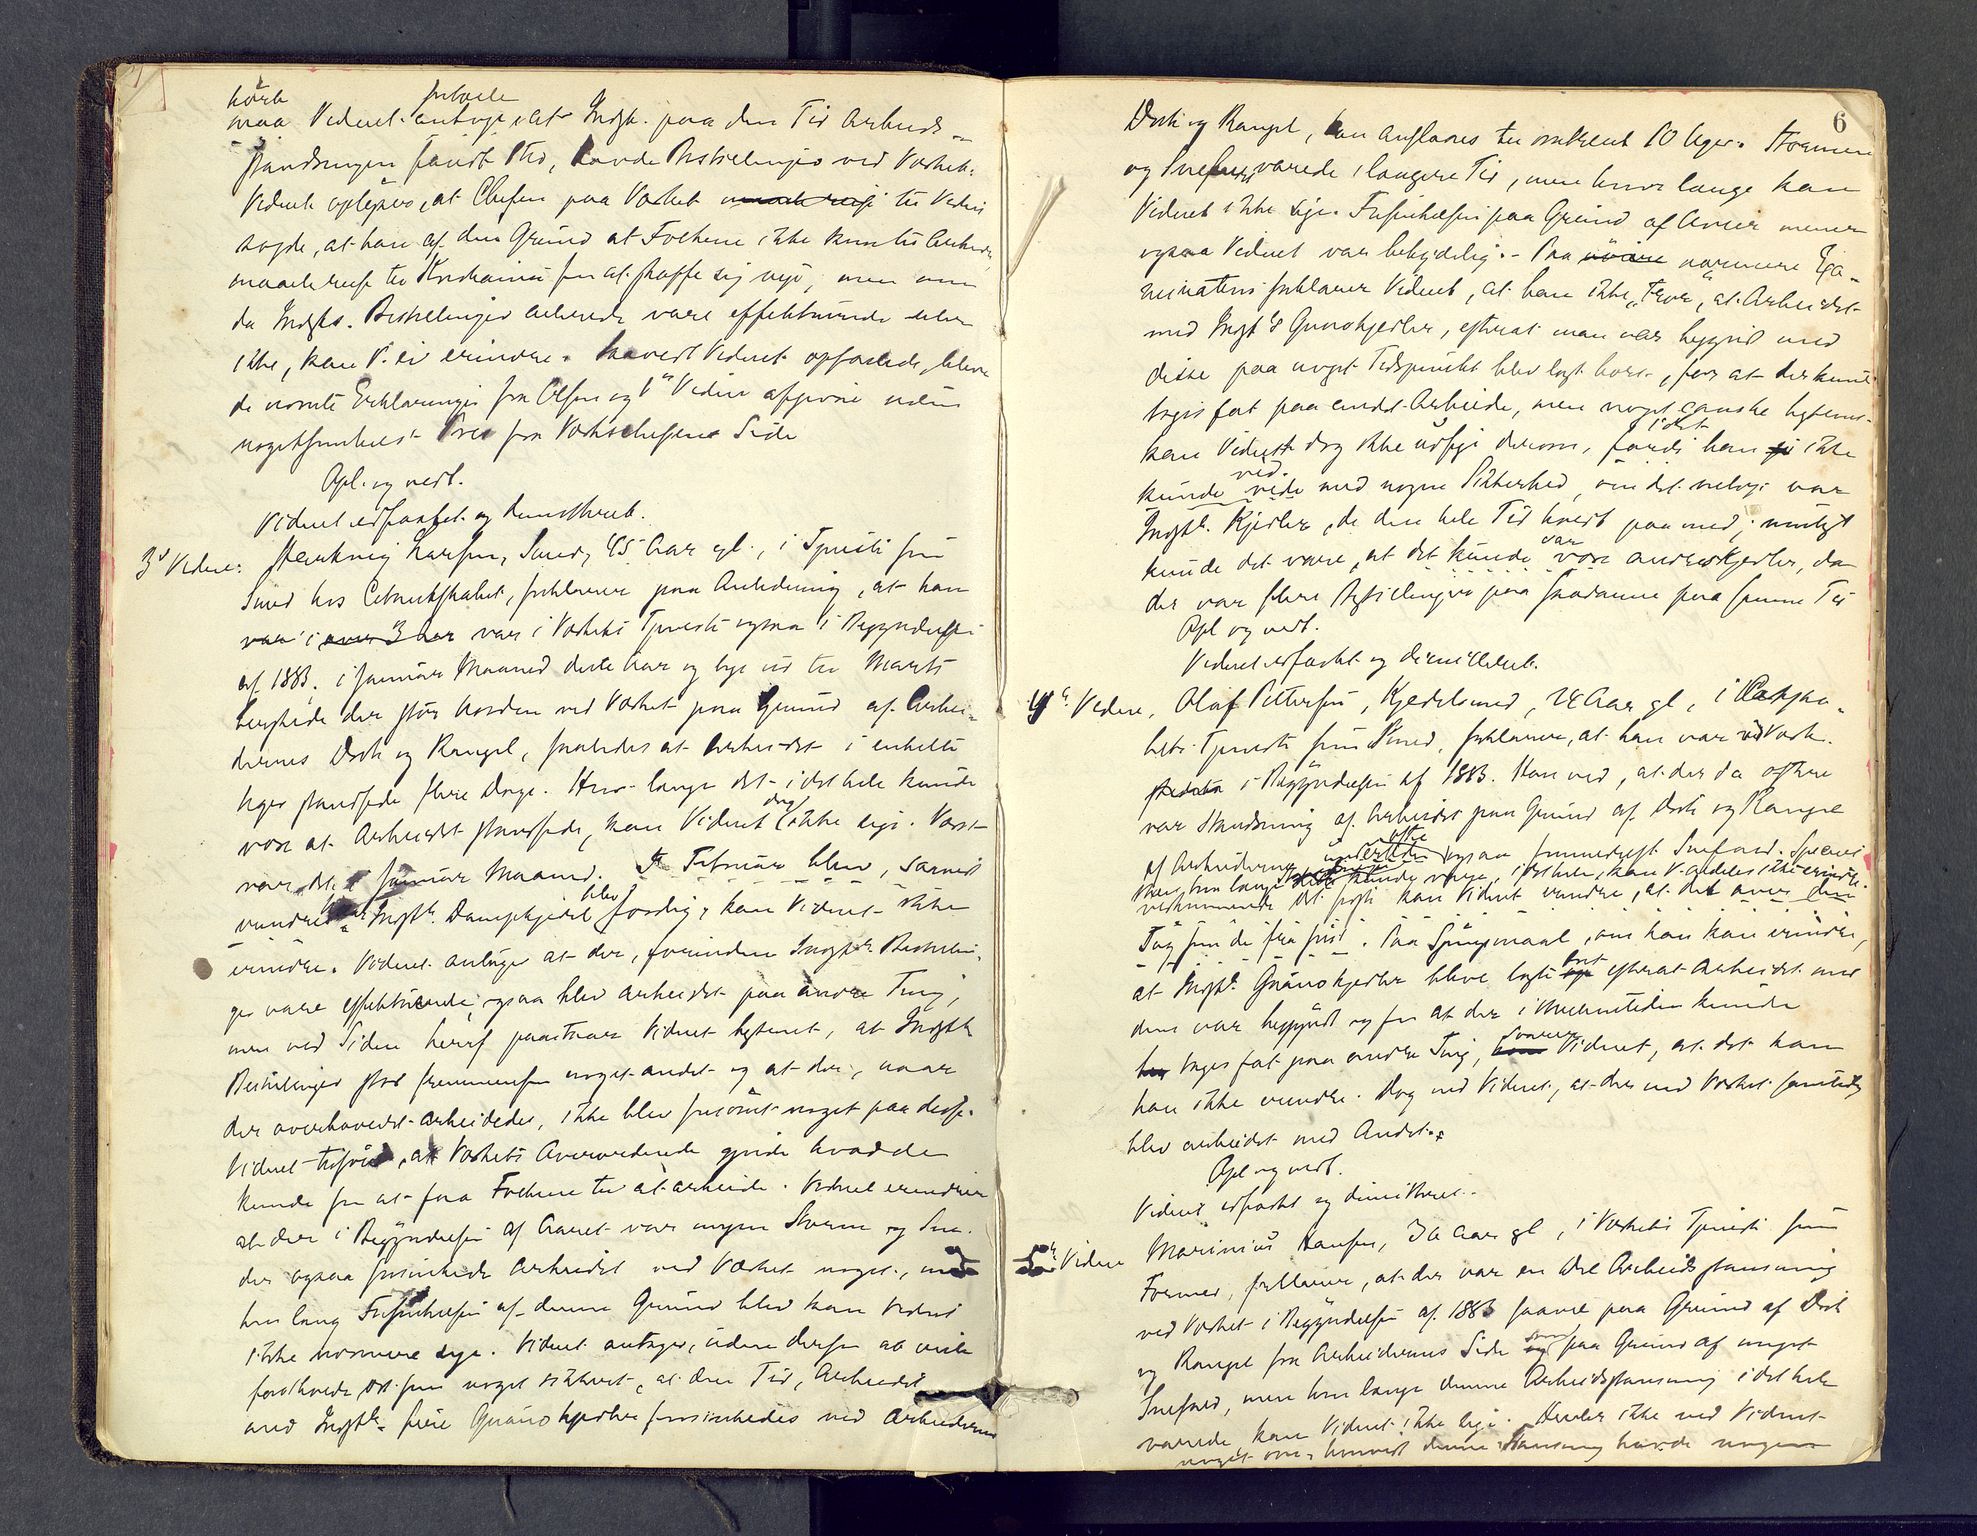 maa Vidnet antage at Indgst. paa den Tid Arbeids-
standsningen fandt Sted, havde Bestillinger ved Værket.
Vidnet oplyser, at Chefen paa Værket maatte reise til Vidnet
sagde, at han af den Grund at Folkene ikke kunde Arbeide,
maatte reise til Kristiania for at skaffe sig nye, men om
da Indgsts. Bestillinger allerede vare effektuerede eller
ikke, kan V. ei erindre. Saavidt Vidnet opfattede, bleve
de nævnte Erklæringer fra Olsen og 1ste Vidne afgivne uden
nogetsomhelst Pres fra Værkschefens Side
Opl. og vedt.
Vidnet edfæstet og demitteret.
3die Vidne: Larsen, Smed, 45 Aar gl., i Tjeneste som
Smed hos Actieselskabet, forklarer paa Anledning, at han
var i over 3 Aar var i Værkets Tjeneste ogsaa i Begyndelsen
af 1883. i Januar Maaned dette Aar og lige ud til Marts
herskede der stor Uorden ved Værket paa Grund af Arbei-
dernes Drik og Rangel, saaledes at Arbeidet i enkelte
Uger standsede flere Dage. Hvor længe det i det hele kunde
være at Arbeidet standsede, kan Vidnet dog ikke sige. Værst
var det i Januar Maaned. I Februar blev, saavidt
erindres Indgsts. Dampkjedel blev færdig, kan Vidnet ikke
erindre. Vidnet antager at der, forinden Indgsts Bestillin-
ger vare effektuerede, ogsaa blev arbeidet paa andre Ting,
men ved Siden heraf paastaar Vidnet bestemt, at Indgsts
Bestillinger stod fremmenfor noget andet og at der, naar
der overhovedet arbeidedes, ikke blev forsømt noget paa disse.
Vidnet tilføier, at Værkets Overordnede gjorde hvad de
kunde for at faa Folkene til at arbeide. Vidnet erindrer
at der i Begyndelsen af Aaret var megen Storm og Sne.
der ogsaa forsinkede Arbeidet ved Værket noget, men
hvor lang Forsinkelsen af denne Grund blev kan Vidnet
ikke nærmere sige. Vidnet antager, uden derfor at ville
fastholde det som noget sikkert, at den Tid, Arbeidet
med Indgsts. fire Guanokjedler forsinkedes ved Arbeidernes
6
Drik og Rangel, kan anslaaes til omtrent 10 Uger. Stormen
og Snefald varede i længere Tid, men hvor længe kan
Vidnet ikke sige. Forsinkelsen paa Grund af mener
ogsaa Vidnet var betydelig. - Paa nærmere Exa-
mination forklarer Vidnet, at han ikke "tror", at Arbeidet
med Indgsts Guanokjedler, efterat man var begyndt med
disse paa noget Tidspunkt blev lagt bort, for at der kunde
tages fat paa andet Arbeide, men noget ganske bestemt
kan Vidnet dog ikke udsige derom, idet han ei ikke
kunde vide med nogen Sikkerhed, om det netop var
Indgsts. Kjedler, de den hele Tid holdt paa med; muligt
kunde det være, at det kunde være andres Kjedler, da
der var flere Bestillinger paa saadanne paa samme Tid
Opl og vedt.
Vidnet edfæstet og dimitteret.
4de Vidne, Olaf Pettersen, Kjedelsmed, 24 Aar gl, i Selska-
bets Tjeneste som Smed, forklarer, at han var ved Værk-
stedet i Begyndelsen af 1883. Han ved, at der da oftere
var Standsning af Arbeidet paa Grund af Drik og Rangel
af Arbeiderne, ofte ogsaa formedelst Snefald. Specielt
hvor længe dette kunde vare, i det hele, kan V. aldeles ikke erindre.
vedkommende det sidste kan Vidnet erindre, at det over den
Tag som de fra . Paa Spørgsmaal, om han kan erindre,
at Indgsts. Guanokjedler bleve lagt bort efterat Arbeidet med
dem var begyndt og for at der i Mellemtiden kunde
tages fat paa andre Ting, svarer Vidnet, at det kan
han ikke erindre. Dog ved Vidnet, at der ved Værket samtidig
blev arbeidet med Andet.
Opl og vedt.
Vidnet edfæstet og dimitteret.
5te Vidne Marinius Hansen, 30 Aar gl, i Værkets Tjeneste som
Former, forklarer, at der var en Del Arbeidsstansning
ved Værket i Begyndelsen af 1883 saavel paa Grund af Drik
og Rangel fra Arbeidernes Side som paa Grund af noget
Snefald, men hvor længe denne Arbeidsstansning i det hele
varede, kan Vidnet ikke sige. Heller ikke ved Vidnet
noget om, hvorvidt denne Stansning havde nogen